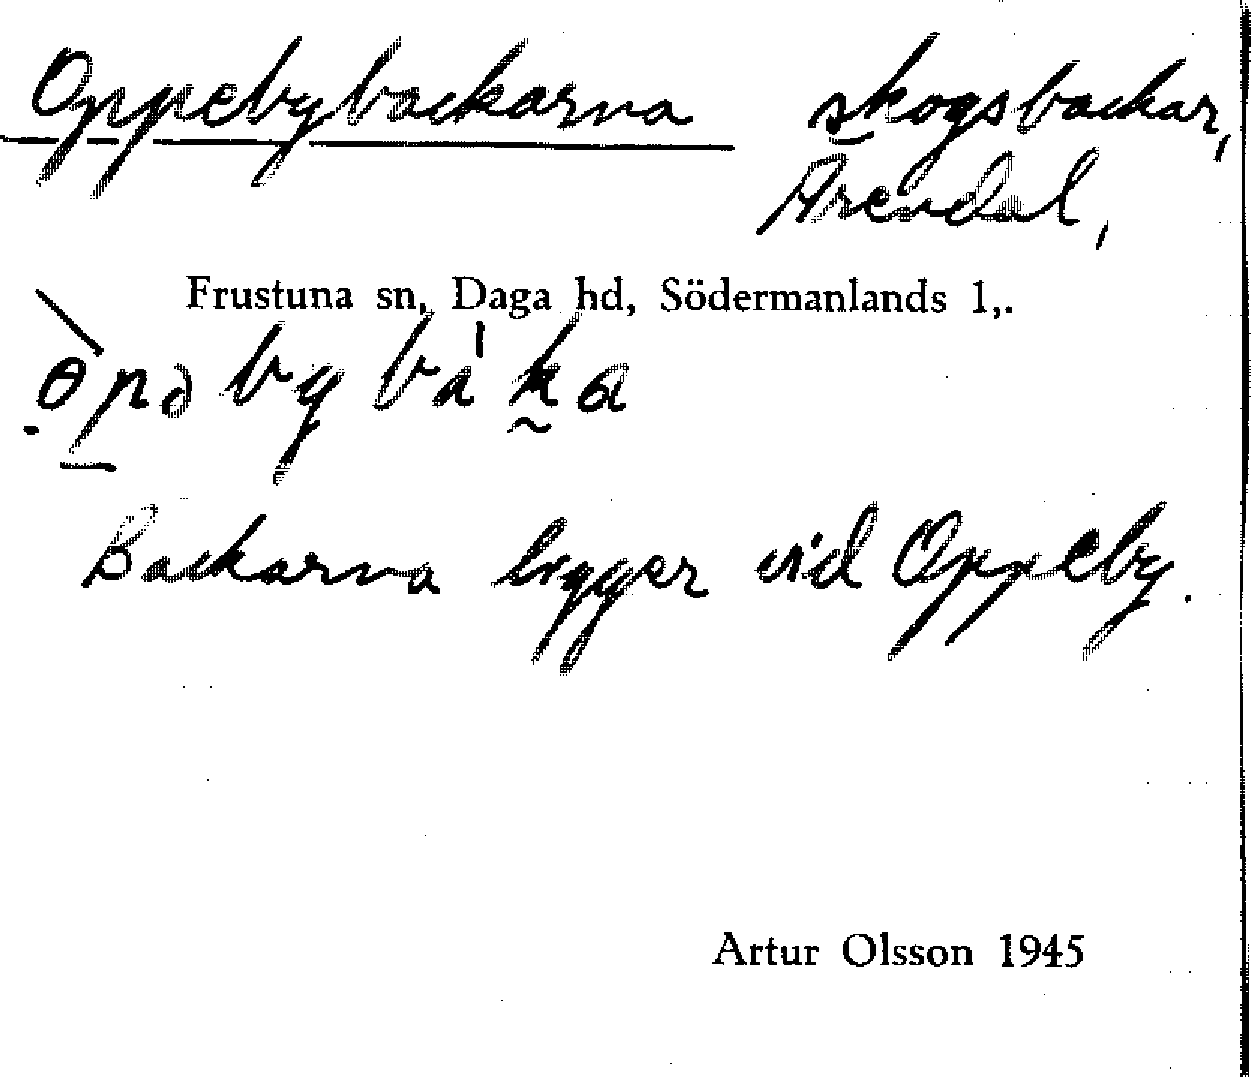 Oppebybackarna skogsbackar,
Arendal,
Frustuna sn, Daga hd, Södermanlands l,.
Backarna ligger vid Oppeby.
Artur Olsson 1945